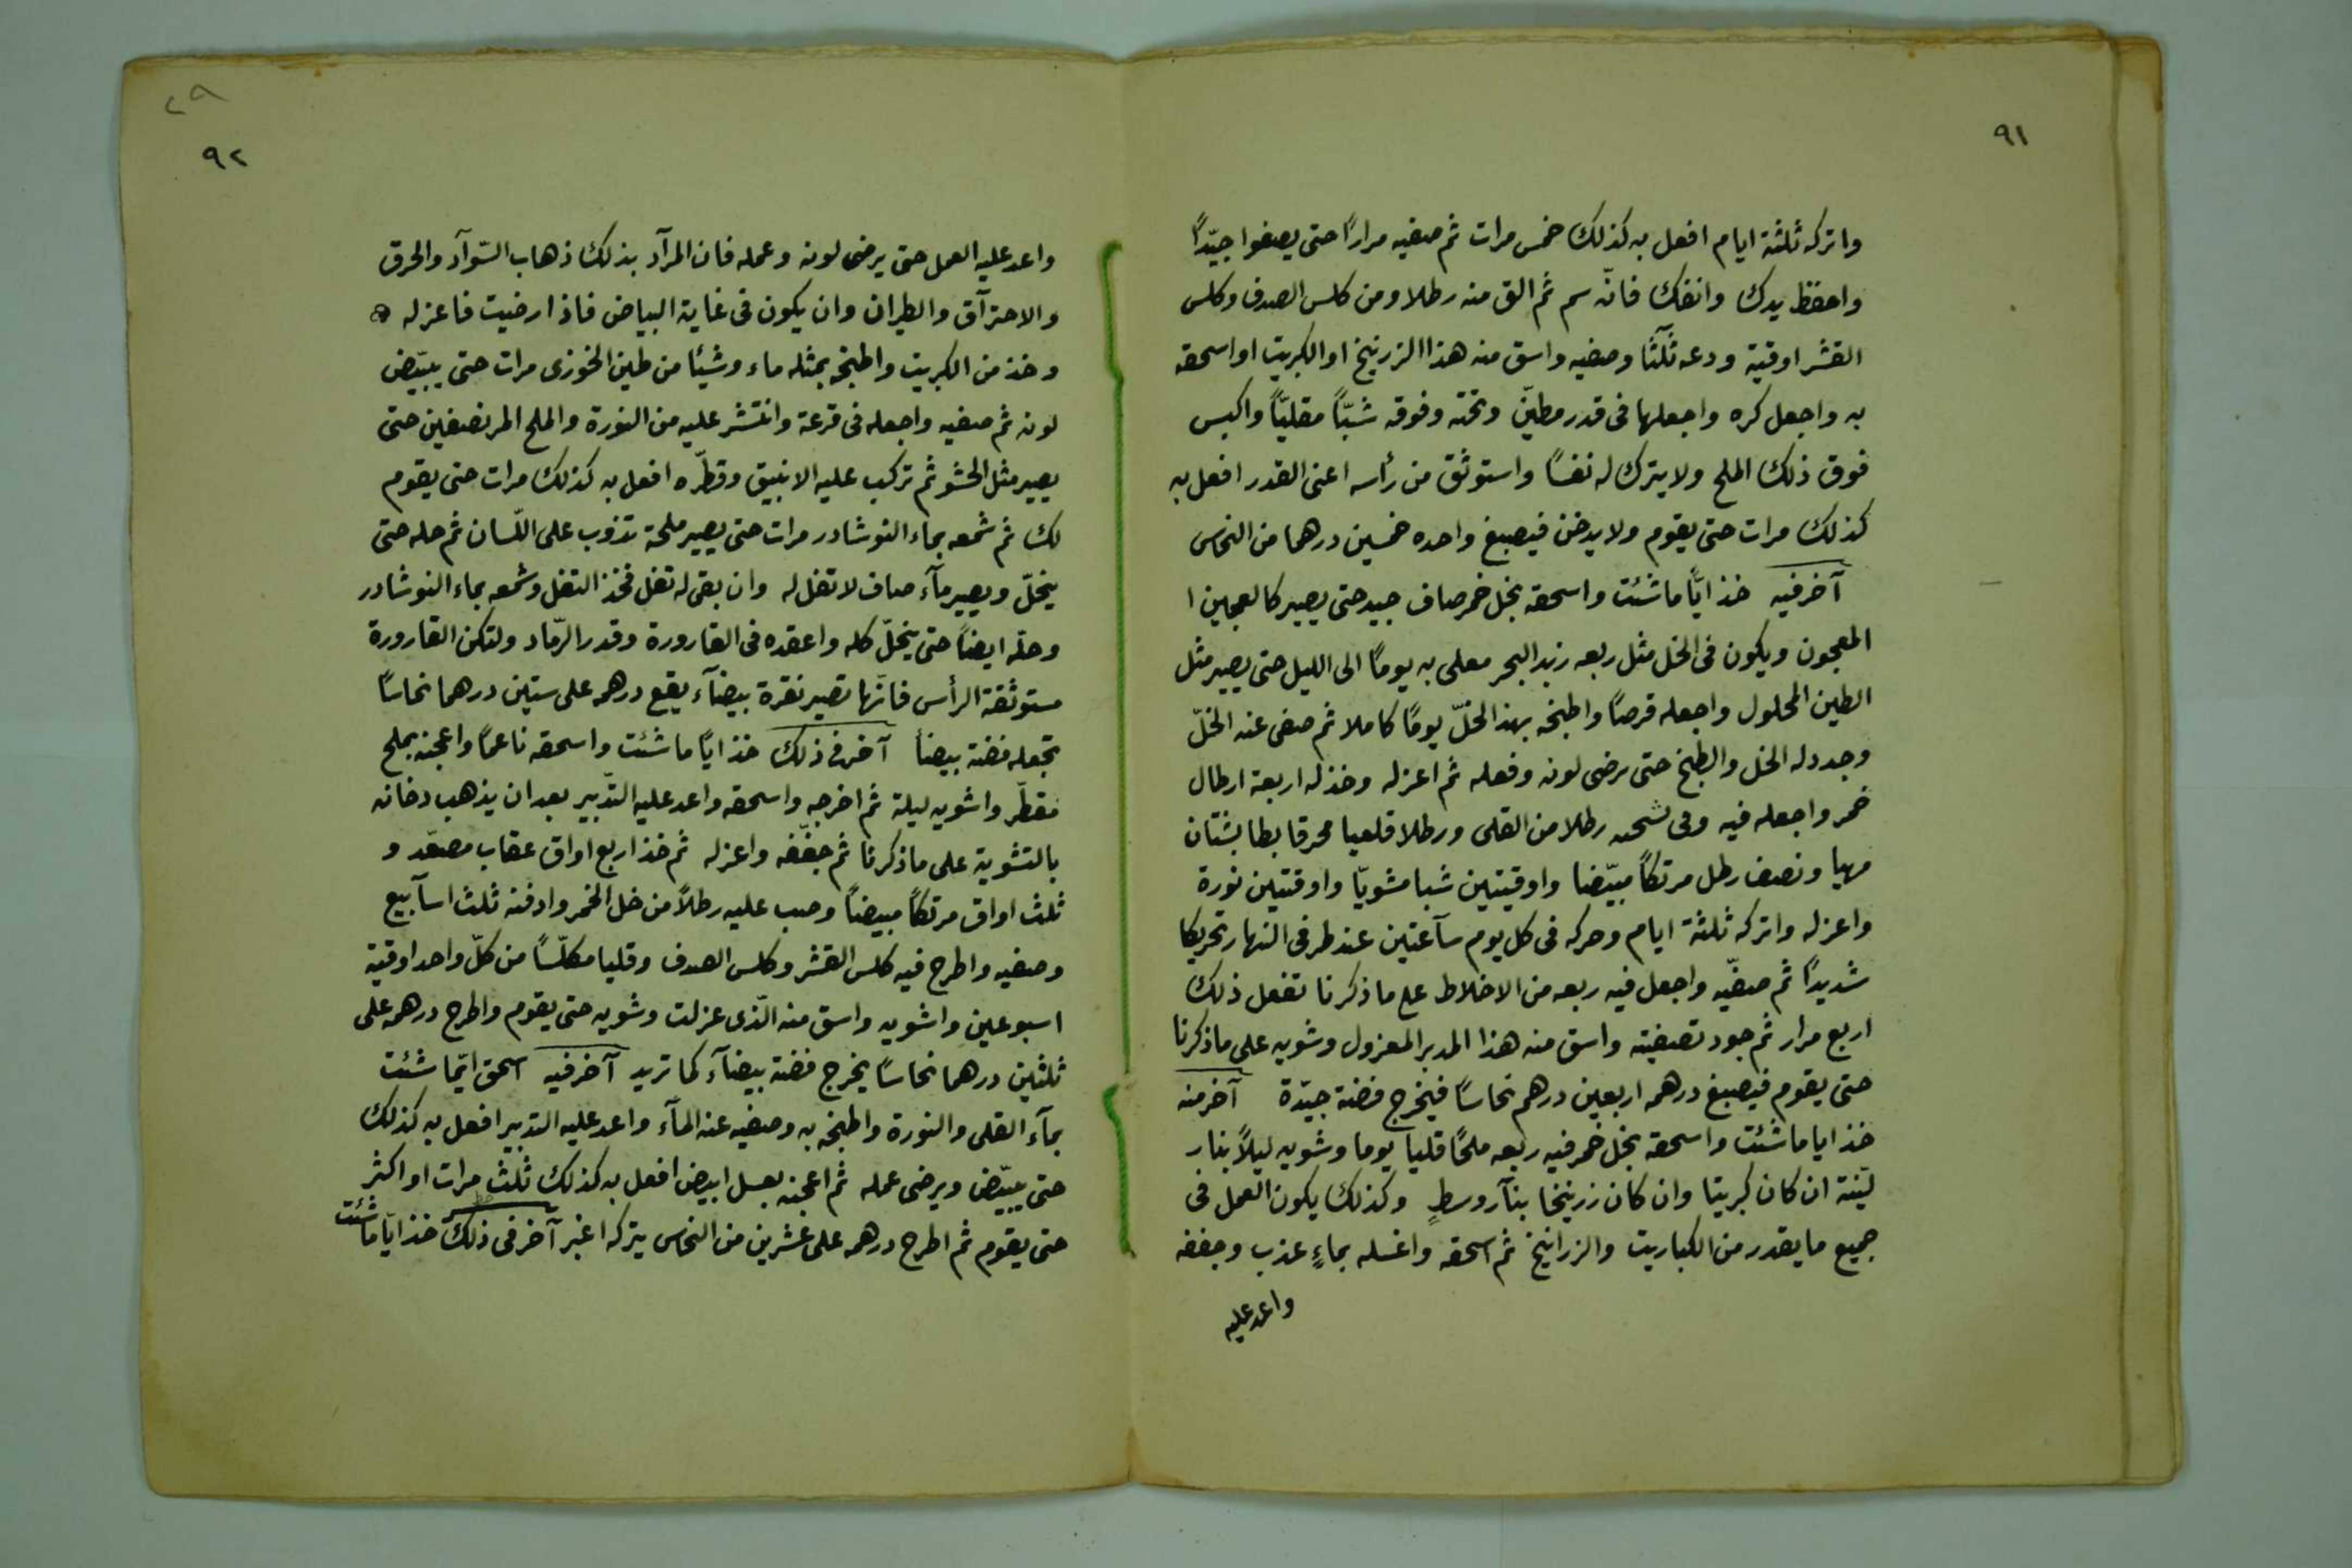 ٩١
واتركه ثلثة ايام افعل به كذلك خمس مرات ثم صفيه مرارًا حتى يصفوا جيّدًا
واحفظ يدك وانفك فانّه سم ثم الق منه رطلا ومن كلس الصدف وكلس
القشر اوقية ودعه ثلثًا وصفيه واسق منه هذا الزرنيخ او الكبريت او اسحقه
به واجعل كره واجعلها فى قدر مطيّن وتحته وفوقه شبّاً مقليّاً واكبس
فوق ذلك الملح ولا يترك له نفسًا واستوثق من رأسه اعنى القدر افعل به
كذلك مرات حتى يقوم ولا يدخن فيصبغ واحده خمسين درهما من النحاس
آخر فيه خذ ايّاً ما شئت واسحقه بخل خمر صاف جيد حتى يصير كالعجين ا
المعجون ويكون فى الخل مثل ربعه زبد البحر معلى به يومًا الى الليل حتى يصير مثل
الطين المحلول واجعله قرصًا واطبخه بهذا الخلّ يومًا كاملا ثم صفى عنه الخلّ
وجدد له الخل والطبخ حتى يرضى لونه وفعله ثم اعزله وخذ له اربعة ارطال
خمر واجعله فيه وفى رطلا من القلى ورطلا قلعيا محرقا
مهيا ونصف رطل مرتكاً مبيّضا واوقيتين شبا مشويّا واوقتين نورة
واعزله واتركه ثلثة ايام وحركه فى كل يوم سآعتين عند طرفى النهار تحريكا
شديدًا ثم صفّيه واجعل فيه ربعه من الاخلاط على ما ذكرنا تفعل ذلك
اربع مرار ثم جود تصفيته واسق منه هذا المدبر المعزول وشويه على ما ذكرنا
حتى يقوم فيصبغ درهمه اربعين درهم نحاسًا فيخرج فضة جيّدة آخر منه
خذ ايا ما شئت واسحقه بخل خمر فيه ربعه ملحًا قليا يوما وشويه ليلاً بنار
ليّنة ان كان كبريتا وان كان زرنيخا بنآر وسطٍ وكذلك يكون العمل فى
جميع ما يقدر من الكباريت والزرانيخ ثم اسحقه واغسله بماءٍ عذب وجففه
واعد عليه
٢٩
٩٢
واعد عليه العمل حتى يرضى لونه وعمله فان المرآد بذلك ذهاب السّوآد والحرق
والاحترآق والطيران وان يكون فى غاية البياض فاذا رضيت فاعزله
وخذ من الكبريت واطبخه بمثله ماء وشيئا من طين الخوزى مرات حتى يبيّض
لونه ثم صفيه واجعله فى قرعة وانتشر عليه من النورة والملح المر نصفين حتى
يصير مثل الحشو ثم تركب عليه الانبيق وقطّره افعل به كذلك مرات حتى يقوم
لك ثم شمعه بماء النوشادر مرات حتى يصير ملحة تذوب على اللّسان ثم حله حتى
ينحلّ ويصير مآء صاف لا تفل له وان بقى له تفل فخذ التفل وشمعه بماء النوشادر
وحلّه ايضاً حتى ينحلّ كله واعقده فى القارورة وقدر الرّماد ولتكن القارورة
مستوثقة الرأس فانّها تصير نقرة بيضآء يقع درهمه على ستين درهما نحاسًا
تجعله فضة بيضاً آخر فى ذلك خذ ايًا ما شئت واسحقه ناعمًا واعجنه بملح
مقطّر واشويه ليلة ثم اخرجه واسحقه واعد عليه التّدبير بعد ان يذهب دخانه
بالتشوية على ما ذكرنا ثم جفّفه واعزله ثم خذ اربع اواق عقاب مصعّد و
ثلث اواق مرتكاً مبيضاً وصب عليه رطلاً من خل الخمر وادفنه ثلث اسآبيع
وصفيه واطرح فيه كلس القشر وكلس الصدف وقليا مكلّسًا من كلّ واحد اوقية
اسبوعين واشويه واسق منه الّذى عزلت وشويه حتى يقوم واطرح درهمه على
ثلثين درهما نحاسًا يخرج فضة بيضآء كما تريد آخر فيه اسحق ايّما شئت
بمآء القلى والنورة واطبخه به وصفيه عنه المآء واعد عليه التدبير افعل به كذلك
حتى يبيّض ويرضى عمله ثم اعجنه بعسل ابيض افعل به كذلك ثلث مرات او اكثر
حتى يقوم ثم اطرح درهمه على عشرين من النحاس يتركه اغبر آخر فى ذلك خذ ايّا ما شئت